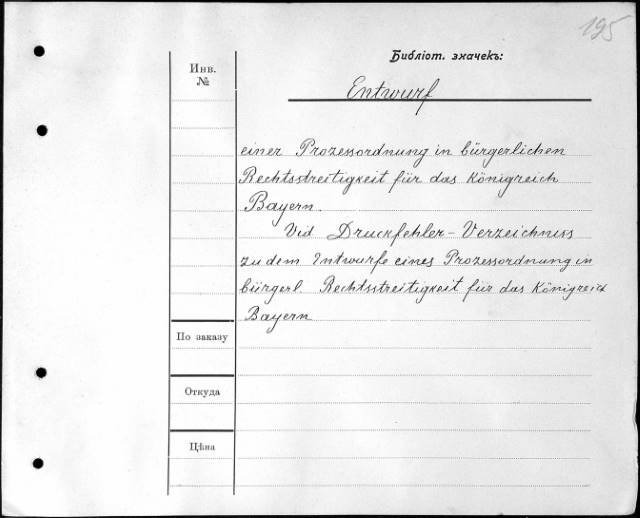 195
Библіот. значекъ:
Инв.
№
Entwurf
einer Prozessordnung in bürgerlichen
Rechtsstreitigkeit für das Königreich
Bayern.
Vid Druckfehler-Verzeichniss
zu dem Entwurfe eines Prozessordnung in
bürgerl. Rechtsstreitigkeit für das Königreich
Bayern
По заказу
Откуда
Цѣна